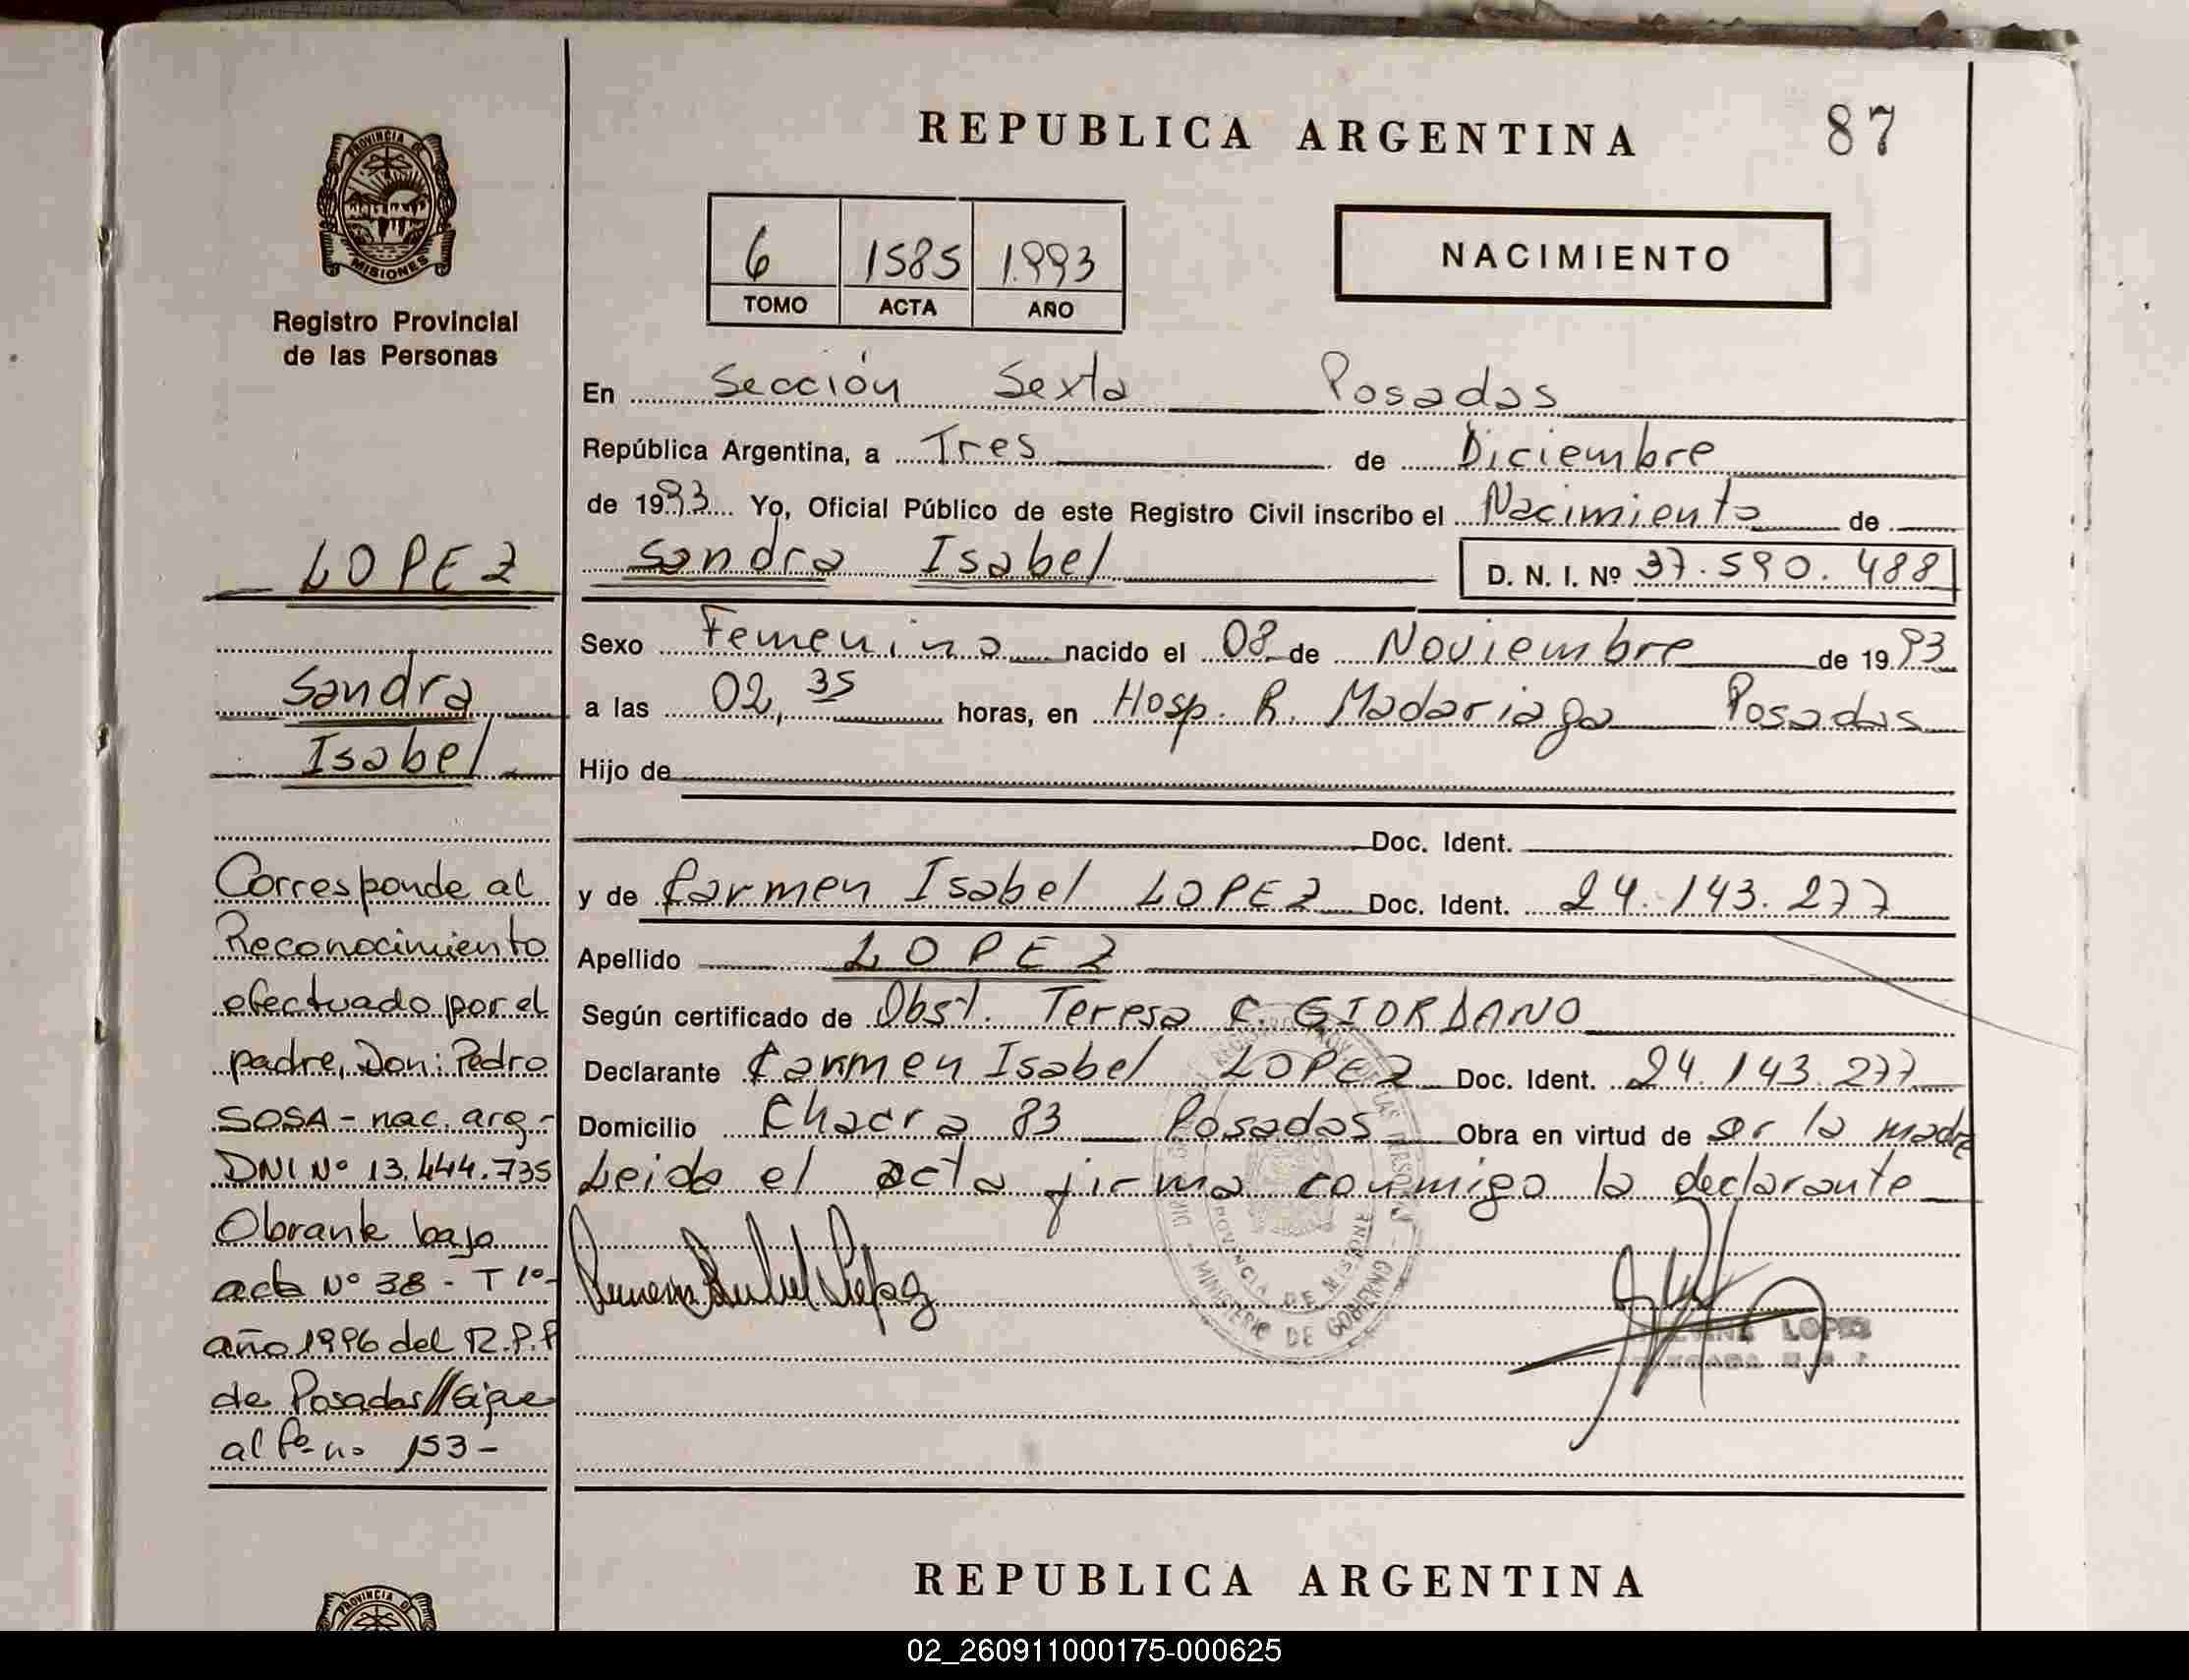 REPUBLICA ARGENTINA 87
PROVINCIA DE
MISIONES
Registro Provincial
de las Personas
6 1585 1.993
TOMO ACTA AÑO
NACIMIENTO
En Sección Sexta Posadas
República Argentina, a Tres de Diciembre
de 1993 Yo, Oficial Público de este Registro Civil inscribo el Nacimiento de
Sandra Isabel D. N. I. Nº 37.590.488
Sexo Femenino nacido el 08 de Noviembre de 1993
a las 02,35 horas, en Hosp. R. Madariaga Posadas
Hijo de
Doc. Ident.
y de Carmen Isabel LOPEZ Doc. Ident. 24.143.277
Apellido LOPEZ
Según certificado de Obst. Teresa C. GIORDANO
Declarante Carmen Isabel LOPEZ Doc. Ident. 24.143.277
Domicilio Chacra 83 Posadas Obra en virtud de ser la madre
Leida el acta firma conmigo la declarante
PROVINCIA DE MISIONES
MINISTERIO DE GOBIERNO
LOPEZ
LOPEZ
Sandra
Isabel
Corresponde al
Reconocimiento
efectuado por el
padre, Don: Pedro
SOSA - nac. arg-
DNI Nº 13.444.735
Obrante bajo
acta Nº 38 - T 1º-
año 1996 del R.P.P
de Posadas//Sigue
al fº no 153-
REPUBLICA ARGENTINA
PROVINCIA DE
02_260911000175-000625